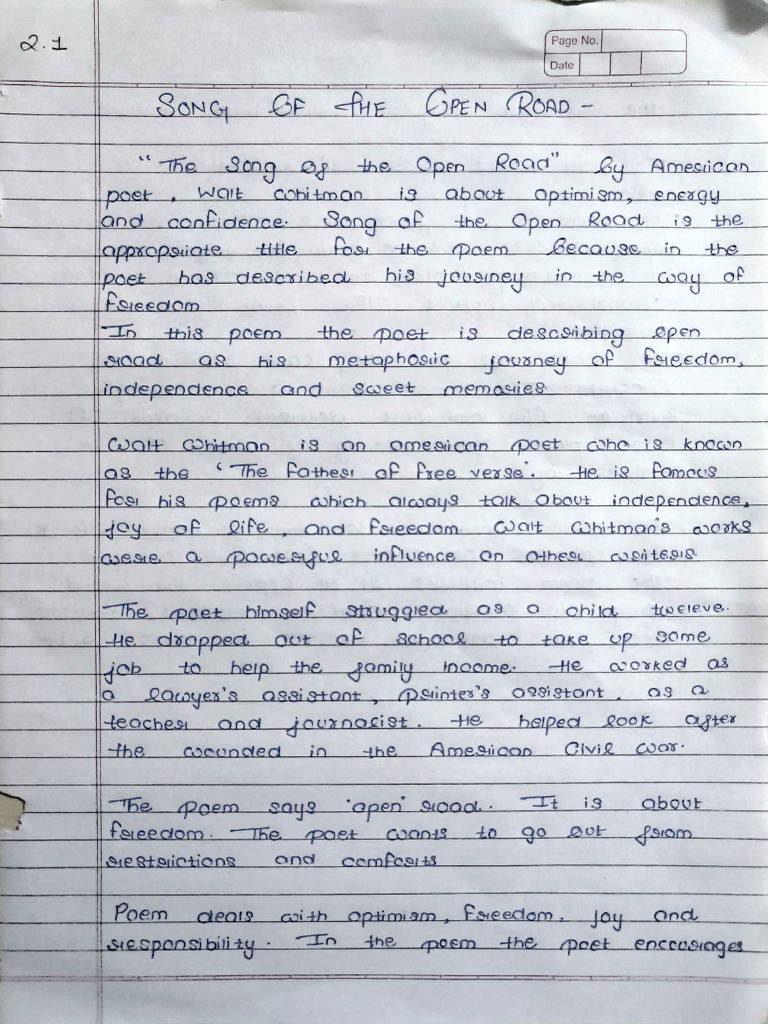 2.1
Page No.
Date
SONG OF THE OPEN ROAD -
"The Song of the Open Road" by American
poet, Walt Whitman is about optimism, energy
and confidence. Song of the Open Road is the
appropriate title for the poem because in the
poet has described his journey in the way of
freedom
In this poem the poet is describing open
road as his metaphoric journey of freedom,
independence and sweet memories.
Walt Whitman is an american poet who is known
as the 'The Father of free verse'. He is famous
for his poems which always talk about independence,
joy of life, and freedom. Walt Whitman's works
were a powerful influence on other writers.
The poet himself struggled as a child tweleve.
He dropped out of school to take up some
job to help the family income. He worked as
a lawyer's assistant, printer's assistant, as a
teacher and journalist. He helped look after
the wounded in the American Civil war.
The poem says 'open' road. It is about
freedom. The poet wants to go out from
restrictions and comforts
Poem deals with optimism, freedom, joy and
responsibility. In the poem the poet encourages